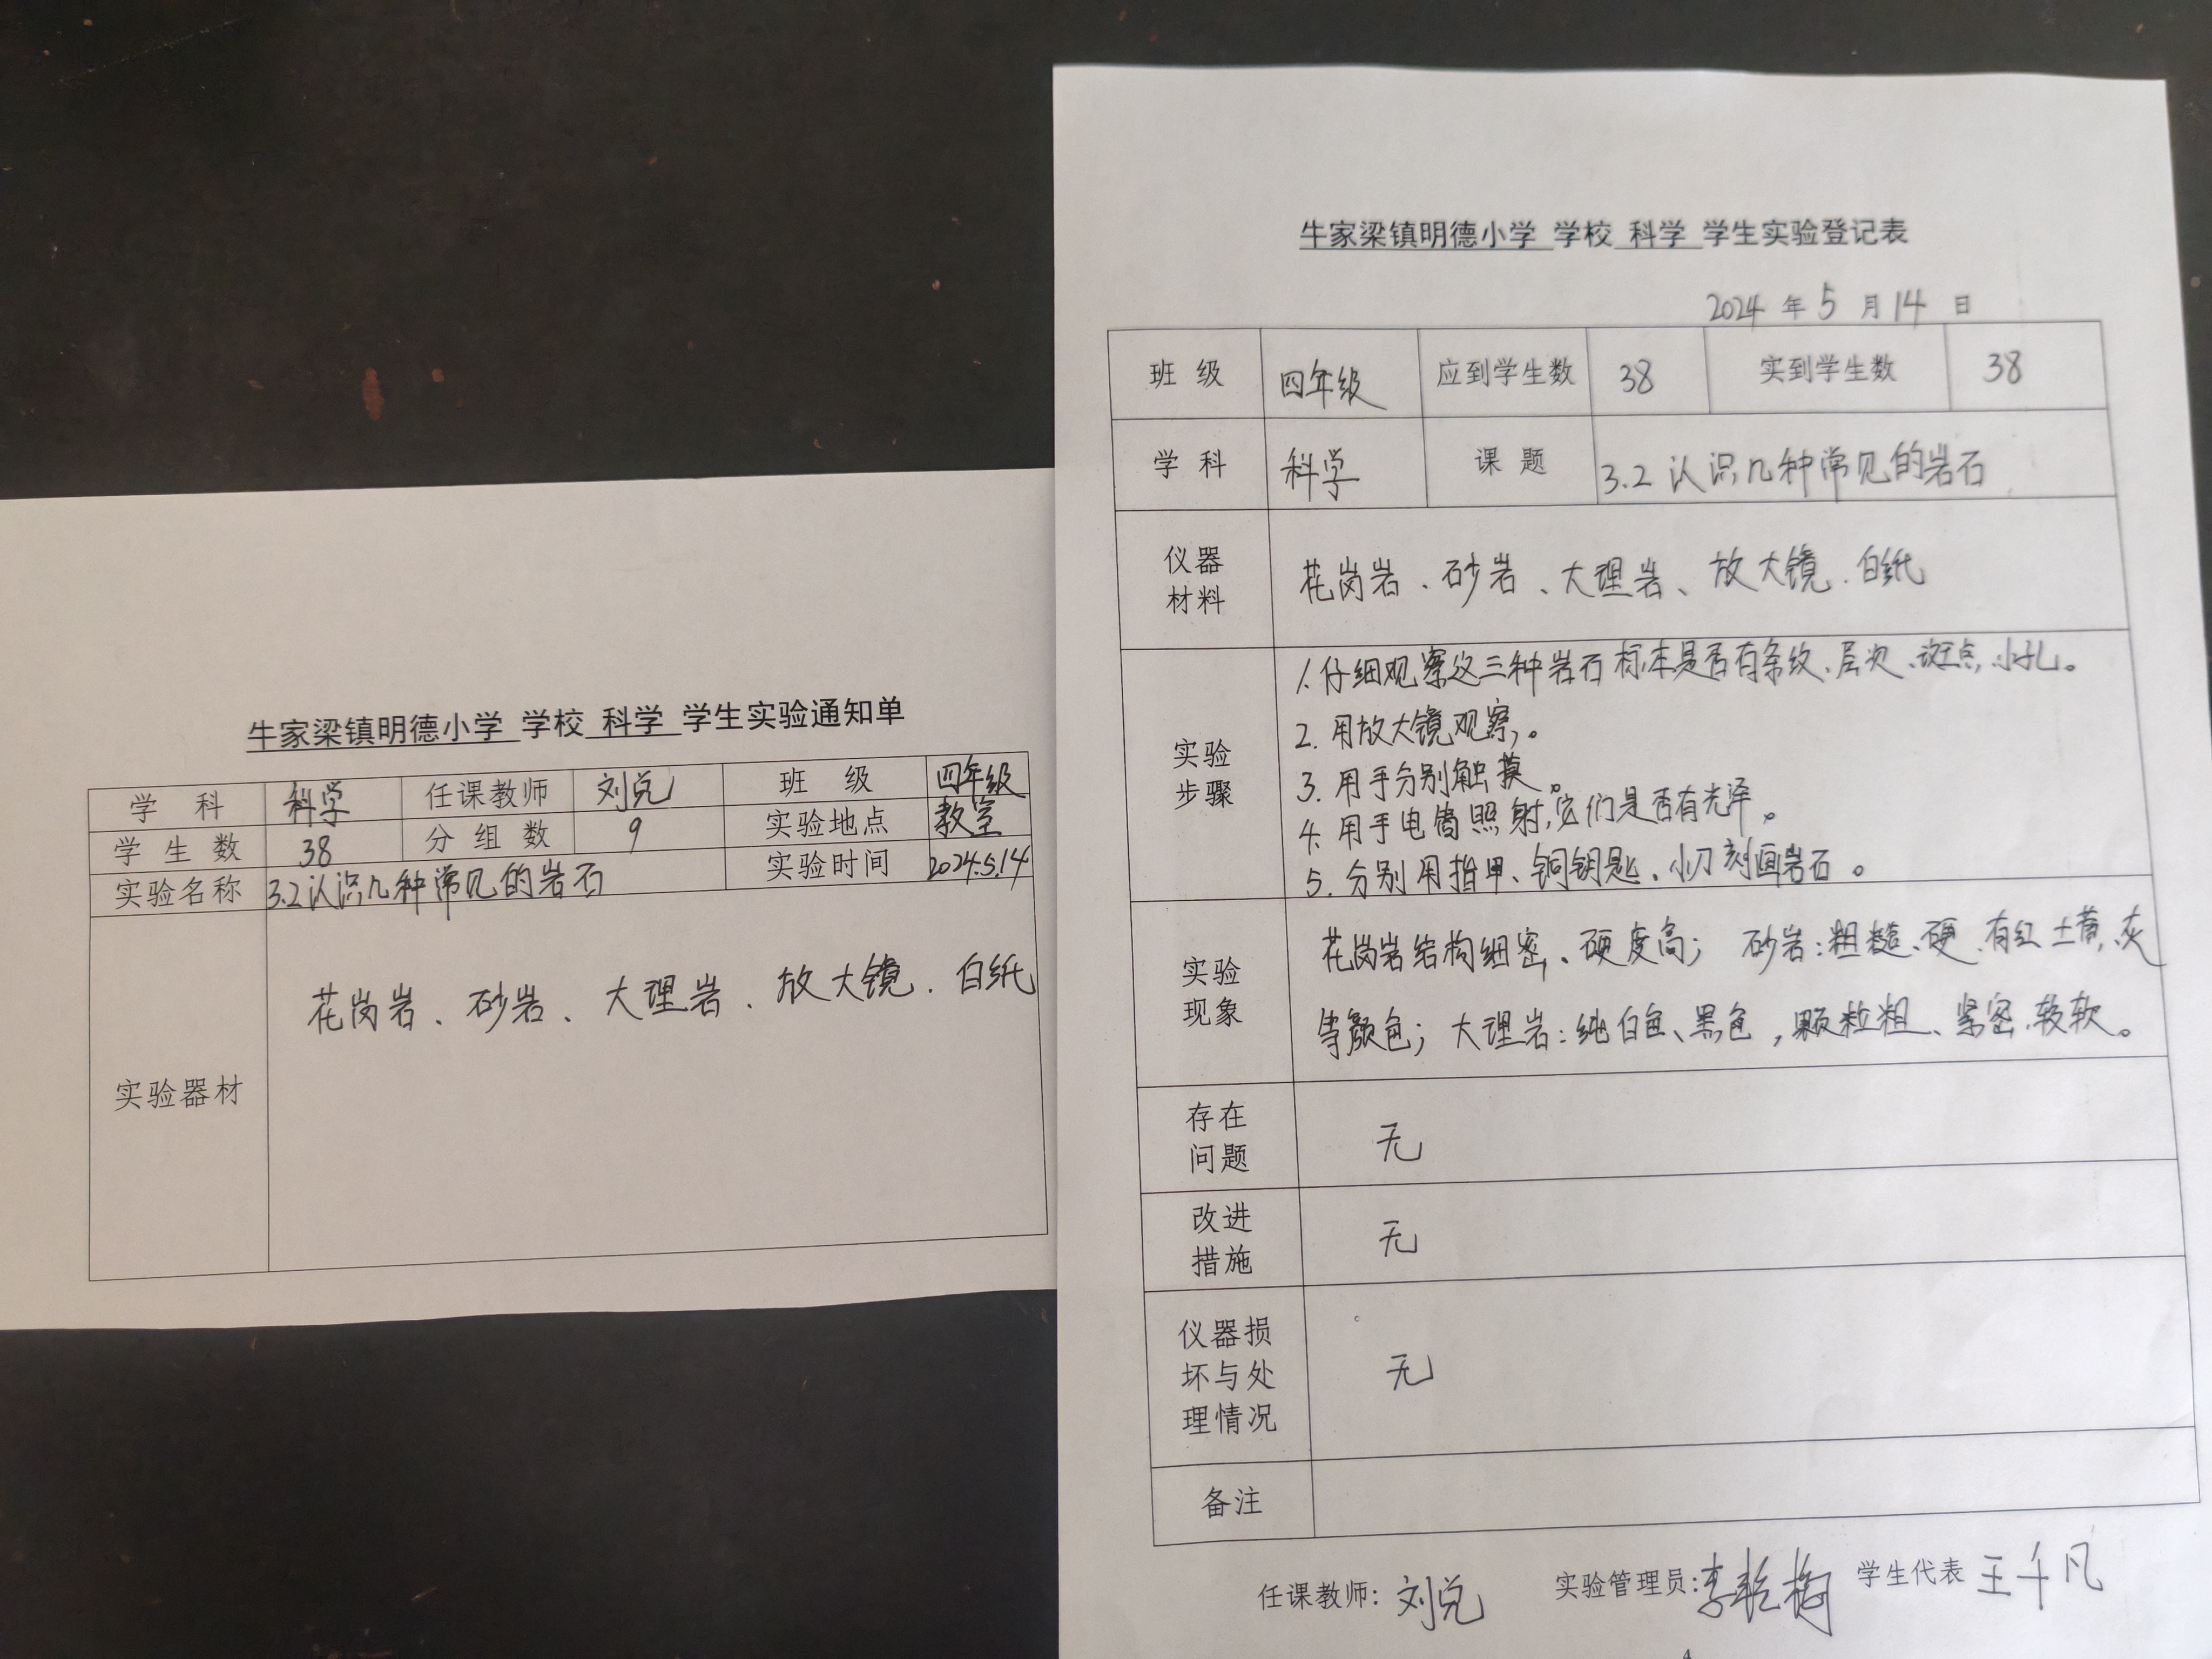 牛家梁镇明德小学 学校 科学 学生实验通知单
学 科 科学 任课教师 刘兑 班 级 四年级
学 生 数 38 分 组 数 9 实验地点 教室
实验名称 3.2认识几种常见的岩石 实验时间 2024.5.14
实验器材 花岗岩、砂岩、大理岩、放大镜、白纸
牛家梁镇明德小学 学校 科学 学生实验登记表
2024 年 5 月 14 日
班 级 四年级 应到学生数 38 实到学生数 38
学 科 科学 课 题 3.2 认识几种常见的岩石
仪器
材料
花岗岩、砂岩、大理岩、放大镜、白纸
实验
步骤
1.仔细观察这三种岩石标本是否有条纹、层次、斑点、小孔。
2. 用放大镜观察。
3. 用手分别触摸。
4. 用手电筒照射,它们是否有光泽。
5. 分别用指甲、铜钥匙、小刀刻画岩石。
实验
现象
花岗岩结构细密、硬度高; 砂岩:粗糙、硬、有红、土黄、灰
等颜色; 大理岩:纯白色、黑色,颗粒粗、紧密、较软。
存在
问题
无
改进
措施
无
仪器损
坏与处
理情况
无
备注
任课教师: 刘兑 实验管理员: 学生代表 王千凡
4